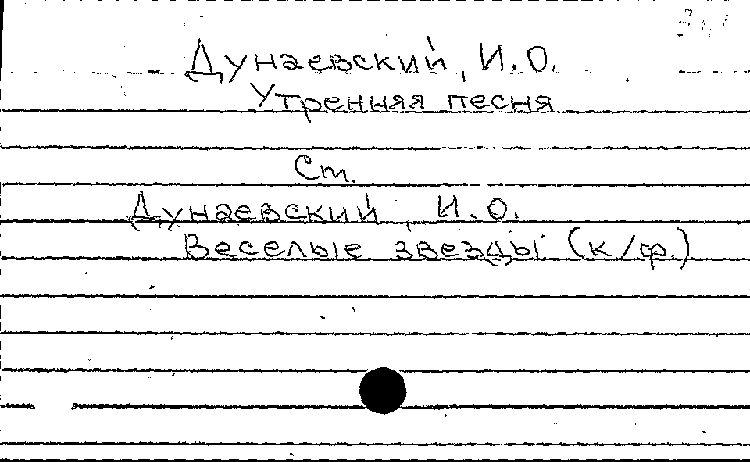 Дунаевский, И.О.
Утренняя песня
Ст.
Дунаевский, И.О.
Веселые звезды (к/ф.)